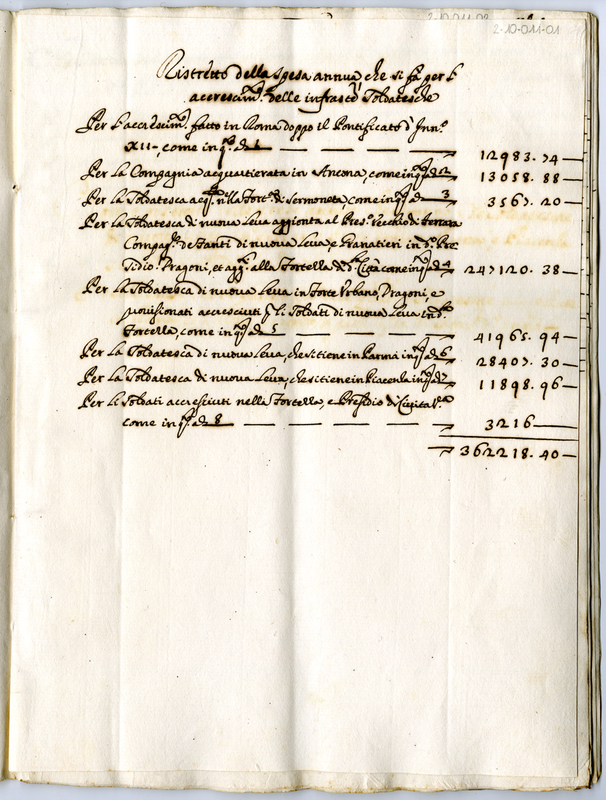 2-10-011-01
Ristretto della spesa annua che si fà per l'
accrescim.to delle infrascte Soldatesche
Per l'accrescim.to fatto in Roma doppo il Pontificato d'Inn.o
XII, come in q.o à 1 12983.74
Per la Compagnia acquartierata in Ancona, come in q.o à 2 13058.88
Per la Soldatesca n'lla Fort.a di Sermoneta, come in q.o à 3 3567.20
Per la Soldatesca di nuova leva aggionta al Pres.o Vecchio di Ferrara
Compag.e de Fanti di nuova leva, e Granatieri in d.o Pre
sidio. Dragoni, et agg.ti alla Fortezza di d.a Città come in q.o à 4 247120.38
Per la Soldatesca di nuova leva in Forte Urbano, Dragoni, e
provisionati accresciuti p li Soldati di nuova leva in d.a
Fortezza, come in q.o à 5 41965.94
Per la Soldatesca di nuova leva, che si tiene in Parma in q.o à 6 28407.30
Per la Soldatesca di nuova leva, che si tiene in Piacenza in q.o à 7 11898.96
Per li Soldati accresciuti nella Fortezza, e Presidio di Civitav.a
come in q.o à 8 3216
362218.40